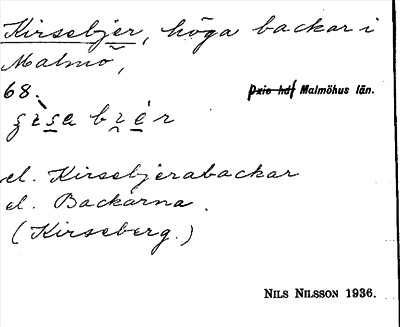 Kirsebjer, höga backar i
Malmö,
68.
Malmöhus län.
el. Kirsebjerabackar
el. Backarna.
(Kirseberg.)
NILS NILSSON 1936.